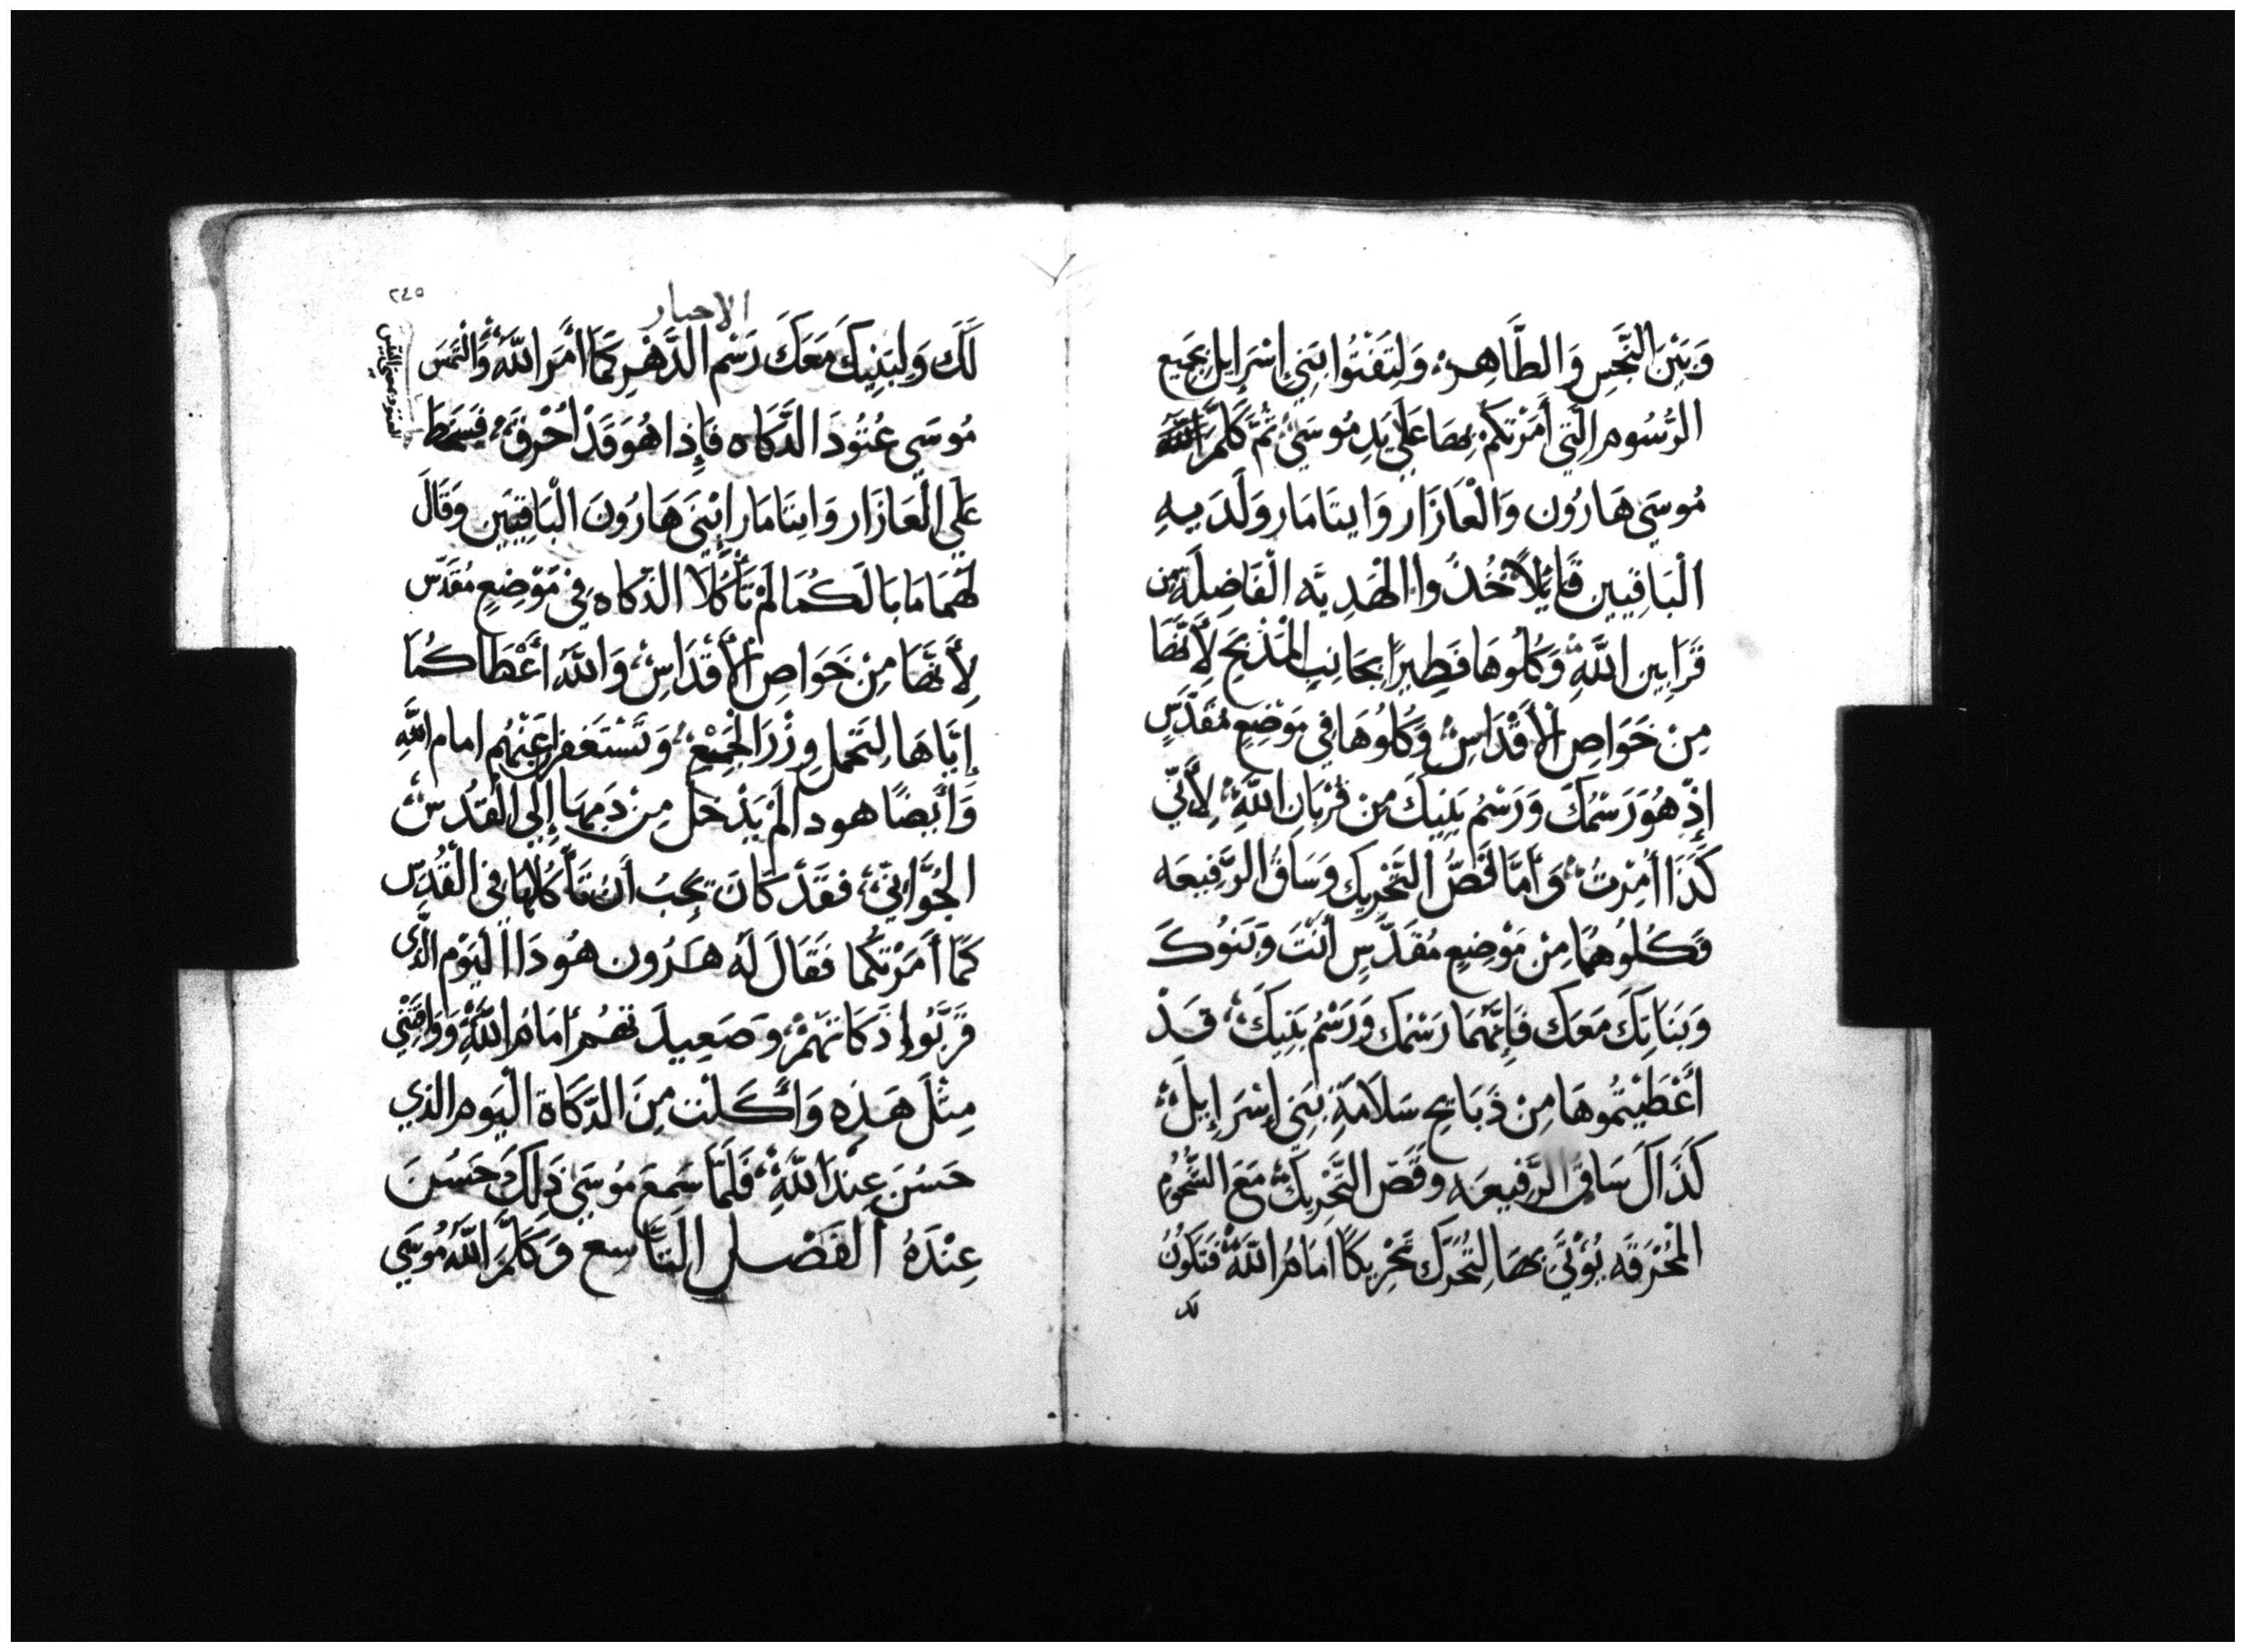 وَبَيْنَ النَّجِسِ وَالطَّاهِرِ، وَلِتَفْتُوا بَنِي إِسْرَايِل بِجَمِيع
الرُّسُوم الَّتِي أَمَرْتكُمْ بِهَا عَلَي يَدِ مُوسَي، ثُمَّ كَلَّمَ
مُوسَي هَارُون وَالْعَازَار وَايتَامَار وَلَدَيهِ
الْبَاقِيين قَايِلاً خُذُوا الْهَدِيَه الْفَاضِلَه مِن
قَرَابِين اللَّهِ، وَكُلُوهَا فَطِيرًا بِجَانِبِ الْمَذْبَحِ لِأَنَّهَا
مِنْ خَوَاصِ الأَقْدَاسِ، وَكُلُوهَا فِي مَوْضِعٍ مُقَدَّسٍ
إِذْ هُوَ رَسْمُكَ وَرَسْمُ بَنِيكَ مِنْ قُرْبَانِ اللَّهِ، لِأَنِّي
كَذَا أُمِرْتُ، وَأَمَّا قَصُّ التَّحْرِيك وَسَاقُ الرَّفِيعَه
فَكُلُوهُمَا مِنْ مَوْضِعٍ مُقَدَّسٍ أَنْتَ وَبَنُوكَ
وَبَنَاتِكَ مَعَكَ فَإِنَّهُمَا رَسْمُك وَرَسْمُ بَنِيكَ، قَدْ
أَعْطَيْتُمُوهَا مِنْ ذَبَايِح سَلَامَةِ بَنِي إِسْرَايِلَ،
كَذَاكَ سَاق الرَّفِيعَه وَقَصّ التَّحْرِيكَ، مَعَ الشُّحُومِ
الْمُحْرَقَه يُؤْتَي بِهَا لِتُحَرَّك تَحْرِيكًا أَمَامَ اللَّهِ، فَتَكُونُ
لك
٢٤٥
الاحبار
لَكَ وَلِبَنِيكَ مَعَكَ رَسْم الدَّهْرِ كَمَا أَمَرَ اللَّهُ، وَالْتَمَسَ
مُوسَي عُتُودَ الذَّكَاه فَإِذَا هُوَ قَدْ أُحْرِقَ، فَسَخَطَ
عَلَي الْعَازَار وَايتَامَار ابْنَي هَارُونَ الْبَاقِيَين وَقَالَ
لَهُمَا مَا بَالَكُمَا لَمْ تَأْكُلَا الذَّكَاه فِي مَوْضِعٍ مُقَدَّس
لِأَنَّهَا مِنْ خَوَاصِ الأَقْدَاسِ، وَاللَّهُ أَعْطَاكُمَا
إِيَّاهَا لِتَحْمِل وِزْرَ الْجَمِيْعِ، وَتَسْتَغْفِرَا عَنْهُم امام اللَّهِ
وَأَيضًا هودا لَمْ يَدْخل مِنْ دَمِهَا إِلَي الْقُدْسِ
الجُوَّانِيِّ، فَقَدْ كَانَ يَجِبُ أَن تَأْكُلَاهَا فِي الْقُدسِ
كَمَا أَمَرْتكُمَا فَقَالَ لَهُ هَرُون هُودَا الْيَوْم الَّذِي
قَرَّبُوا ذَكَاتَهُمْ، وَصَعِيدَتَهُمْ أَمَامَ اللَّهِ، وَوَافَتْنِي
مِثْلَ هَذِهِ وَأَكَلْت مِنَ الذَّكَاة الْيَوم الذي
حَسُنَ عِنْدَ اللَّهِ، فَلَمَّا سَمِعَ مُوسَي ذَلِكَ حَسُنَ
عِنْدَهُ الفَصْل التَّاسِع وَكَلَّمَ اللَّهُ مُوسَي